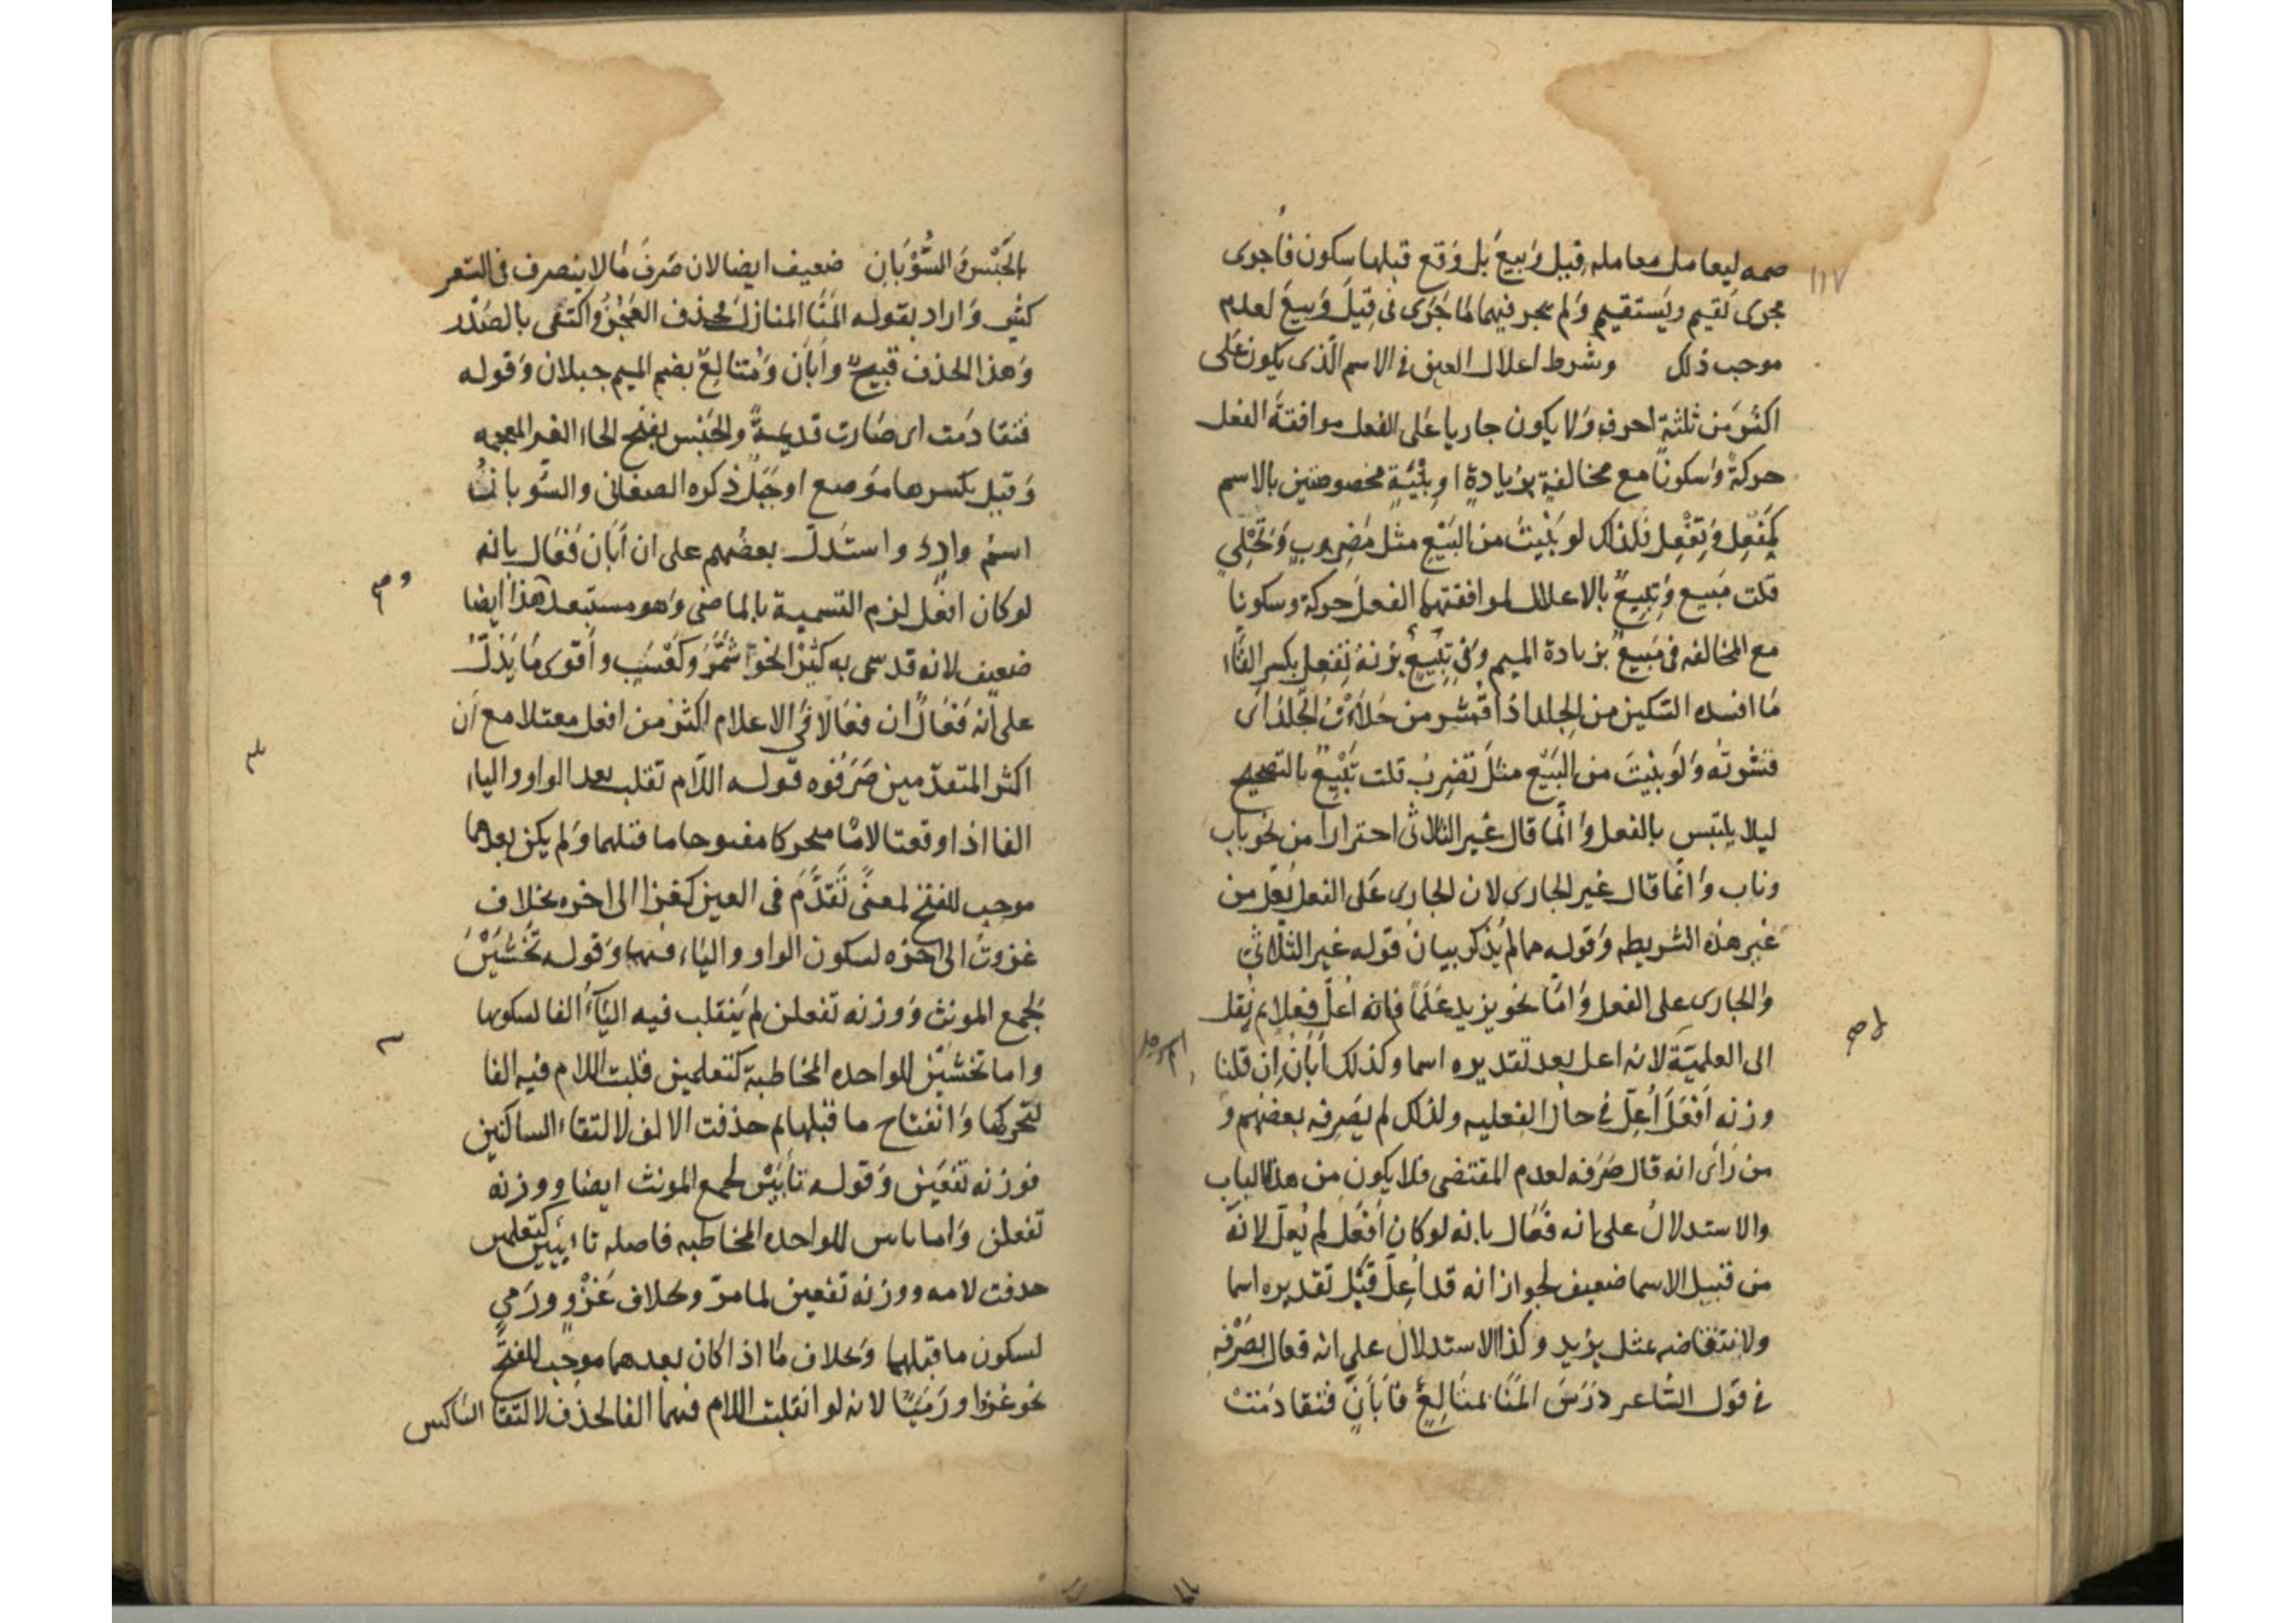 ١١٧
ضمه ليعامل معاملة قيل وَبيعَ بل وَقع قبلها سكون فأجرى
مجرى تقيم ويَستقيم وَلم يجر فيهما مَا جَرَى فى قِيلَ وَبيعَ لعدم
موجب ذلك وشرط اعلال العين فى الاسم الّذى يكون عَلى
اكثر مَن ثلثة احرفٍ وَلا يكون جاريا عَلى الفعل موافقةُ الفعل
حركةً وَسكوناً مع مخالفةٍ بزيادةٍ او بِنْيَةٍ مخصوصتين بالاسم
كمَفْعِل وَتِفْعِل فلذلك لو بَنَيتَ من البَيْع مثل مَضرِبٍ وَتِحْلِئٍ
قلت مَبيع وَتِبِيعٌ بالاعلال لموافقتهما الفعلَ حركة وسكونا
مع المخالفه فى مَبيعٌ بزيادة الميم وَفى تِبِيعٌ بزنة تِفْعِل بكسر التَّاء
مَا افسده السّكين من الجِلد اذا قُشر من حَلَأتُ الجِلْدَ اى
قشرتُه وَلَو بنَيتَ من البَيْع مثلَ تَضرِبُ قلت تَبْيِعُ بالتصحيح
ليلا يلتبس بالفعل وَانّما قال غير الثلاثى احترازا من نحو باب
وناب وَانَّما قال غير الجارى لان الجارى عَلى الفعل يُعَلّ من
غير هذه الشريطه وَقوله مما لم يُذكر بيانُ قوله غير الثّلاثىّ
وَالجارى على الفعل وَامّا نحو يزيد عَلَماً فانه اُعلّ فِعلاً ثم نُقل
الى العلميَّة لانه اعل بعد تقديره اسما وكذلك أبَانُ اِن قلنا
وزنه اَفعَلَ اُعِلّ فى حال الفعليه ولذلك لم يَصرِفه بعضُهم وَ
من رَأى انه فعال صَرَفه لعدم المقتضى فلا يكون من هذا الباب
والاستدلالُ على انه فَعَال بانه لوكان اَفعَلَ لم يُعلّ لانّه
من قبيل الاسما ضعيف لجواز انه قد اُعِلّ قَبْل تقديره اسما
ولانتقاضه بمثل يزيد وكذا الاستدلالُ على انه فعال بصَرْفه
فى قول الشّاعر دَرَسَ المَنَا بمُتَالِعٍ فَأَبَانٍ فتقادَمَتْ
لا صح
بالحَبْس فالسُّوْبَانِ ضعيف ايضا لان صَرفَ مَا لا ينصرف فى الشعر
كثير وَاراد بقوله المَنَا المنازل فحذف العَجُزَ وَاكتفى بالصَّدْر
وَهذا الحذف قبيحٌ وأبَان وَمُتالِعٌ بضم الميم جبلان وَقوله
فتقادَمت اى صَارت قديمةً والحَبْس بفتح الحاء الغير المعجمه
وَقيل بكسرها موَضع او جَبَلٌ ذكره الصغانى والسُّوبانُ
اسمُ وادٍ واستَدلّ بعضُهم على ان اَبَان فَعَال بانه
لو كان افعل لزم التسمية بالماضى وَهو مستبعد هذا ايضا
ضعيف لانه قد سمى به كثيرًا نحو شمَّرَ وَكَعْسَب واَقوى مَا يَدُلّ
على اَنه فَعَال ان فعَالًا فى الاعلام اكثر من افعل معتلا مع اَن
اكثر المتقدّمين صَرَفوه قوله اللّام تقلب بعد الواو والياء
الفا اذا وقعتا لامًا متحركا مفتوحا ما قبلهما وَلم يكن بعدهما
موجِب للفتح لمعنًى تَقدَّمَ فى العين كغزا الى اخره بخلاف
غزوتُ الى اخره لسكون الواو واليَاء فيهما وَقوله تَخْشَيْنَ
لجمع المونث وَوزنه تفعلن لم يَنقلب فيه اليَآءُ الفا لسكونها
واما تخشَيْن للواحده المخاطبة كتعلمين قلبت اللام فيه الفا
لتحركها وَانفتاح ما قبلها ثم حذفت الالف لالتقاء الساكنين
فوزنه تَفعَيْن وَقوله تأبَيْن لجمع المونث ايضا ووزنه
تفعلن وَاما تابين للواحده المخاطبه فاصله تابيين كتعلمين
حذفت لامه ووزنه تفعين لما مرّ وبخلاف غَزْوٍ ورَمىٍ
لسكون ما قبلهما وَبخلاف مَا اذا كان بعدهما موجِب للفتحِ
نحو غَزَوا ورَمَيَا لانه لو انقلبت اللام فيهما الفا لحذف لالتقا الساكنين